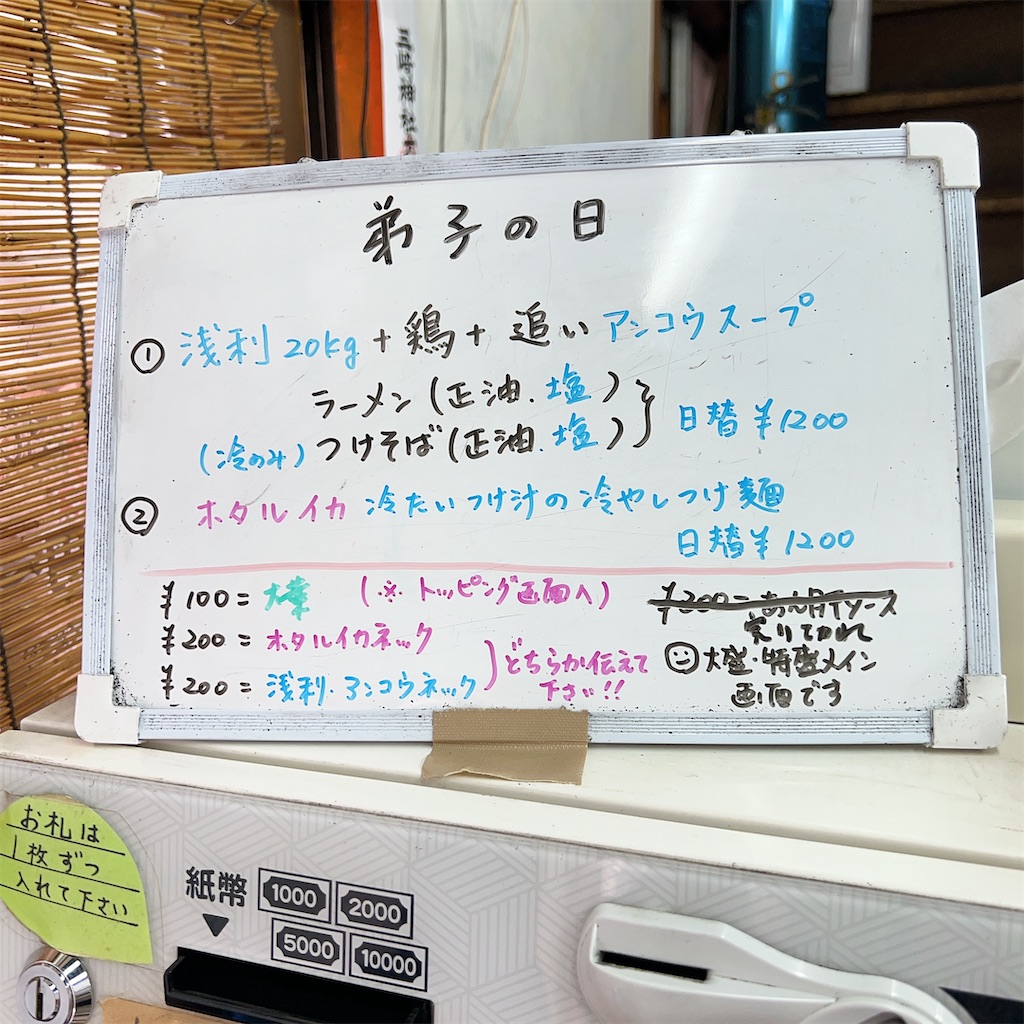 三崎神社
弟子の日
① 浅利20kg+鶏+追いアンコウスープ
ラーメン(正油、塩)
(冷のみ)つけそば(正油、塩) } 日替¥1200
② ホタルイカ 冷たいつけ汁の冷やしつけ麺
日替¥1200
¥100=大葉 (※トッピング画面へ)
¥200=ホタルイカネック
¥200=浅利・アンコウネック
どちらか伝えて
下さい!!
¥200=あん肝ソース
売り切れ
大盛・特盛メイン
画面です
お札は
1枚ずつ
入れて下さい
紙幣
1000 2000
5000 10000